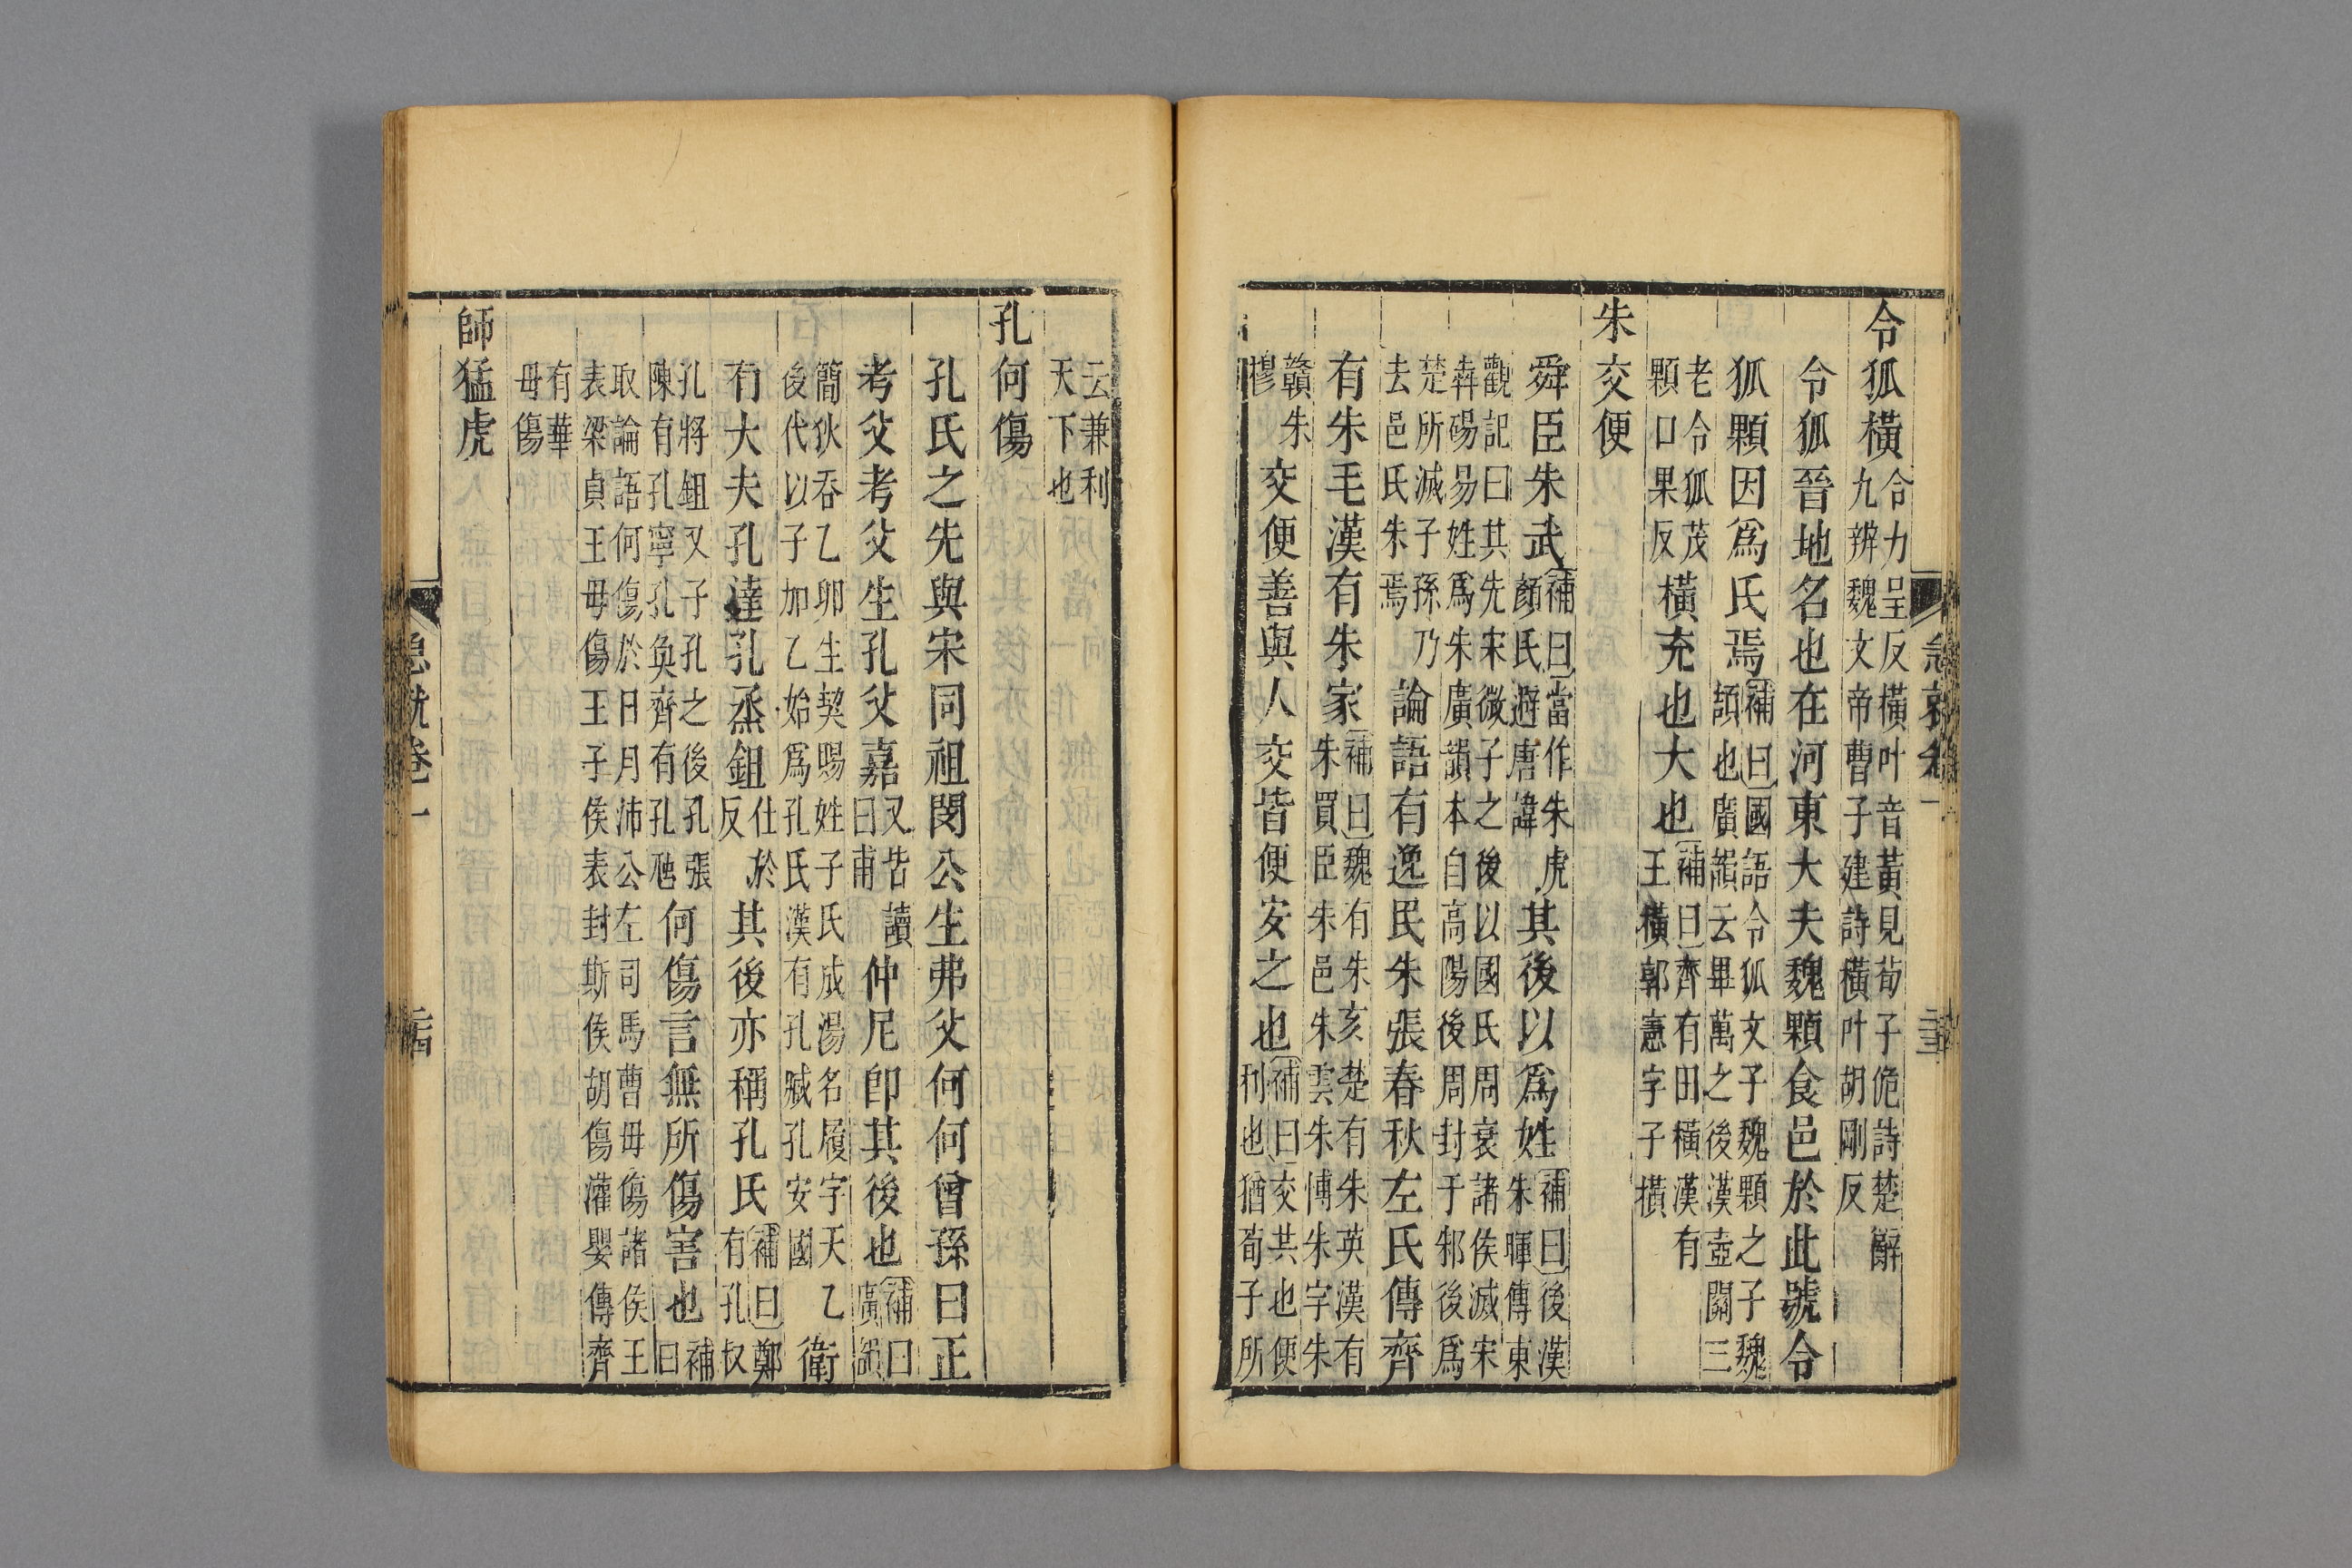 令狐橫令力呈反橫叶音黃見荀子佹詩楚辭
九辨魏文帝曹子建詩橫叶胡剛反
令狐晉地名也在河東大夫魏顆食邑於此號令
狐顆因爲氏焉補曰國語令狐文子魏顆之子魏
頡也廣韻云畢萬之後漢壺關三
老令狐茂
顆口果反橫充也大也補曰齊有田橫漢有
王橫郭憲字子橫
朱交便
舜臣朱武補曰當作朱虎
顏氏避唐諱其後以爲姓補曰後漢
朱暉傳東
觀記曰其先宋微子之後以國氏周衰諸侯滅宋
犇碭易姓爲朱廣韻本自高陽後周封于邾後爲
楚所滅子孫乃
去邑氏朱焉論語有逸民朱張春秋左氏傳齊
有朱毛漢有朱家補曰魏有朱亥楚有朱英漢有
朱買臣朱邑朱雲朱博朱宇朱
贛朱
穆交便善與人交皆便安之也補曰交共也便
利也猶荀子所
云兼利
天下也
孔何傷
孔氏之先與宋同祖閔公生弗父何何曾孫曰正
考父考父生孔父嘉又皆讀
曰甫仲尼卽其後也補曰
廣韻
簡狄吞乙卵生契賜姓子氏成湯名履字天乙
後代以子加乙始爲孔氏漢有孔臧孔安國衛
有大夫孔達孔烝鉏仕於
反其後亦稱孔氏補曰鄭
有孔叔
孔將鉏又子孔之後孔張
陳有孔寧孔奐齊有孔虺何傷言無所傷害也補
曰
取論語何傷於日月沛公左司馬曹毋傷諸侯王
表梁貞王毋傷王子侯表封斯侯胡傷灌嬰傳齊
有華
毋傷
師猛虎
急就卷一